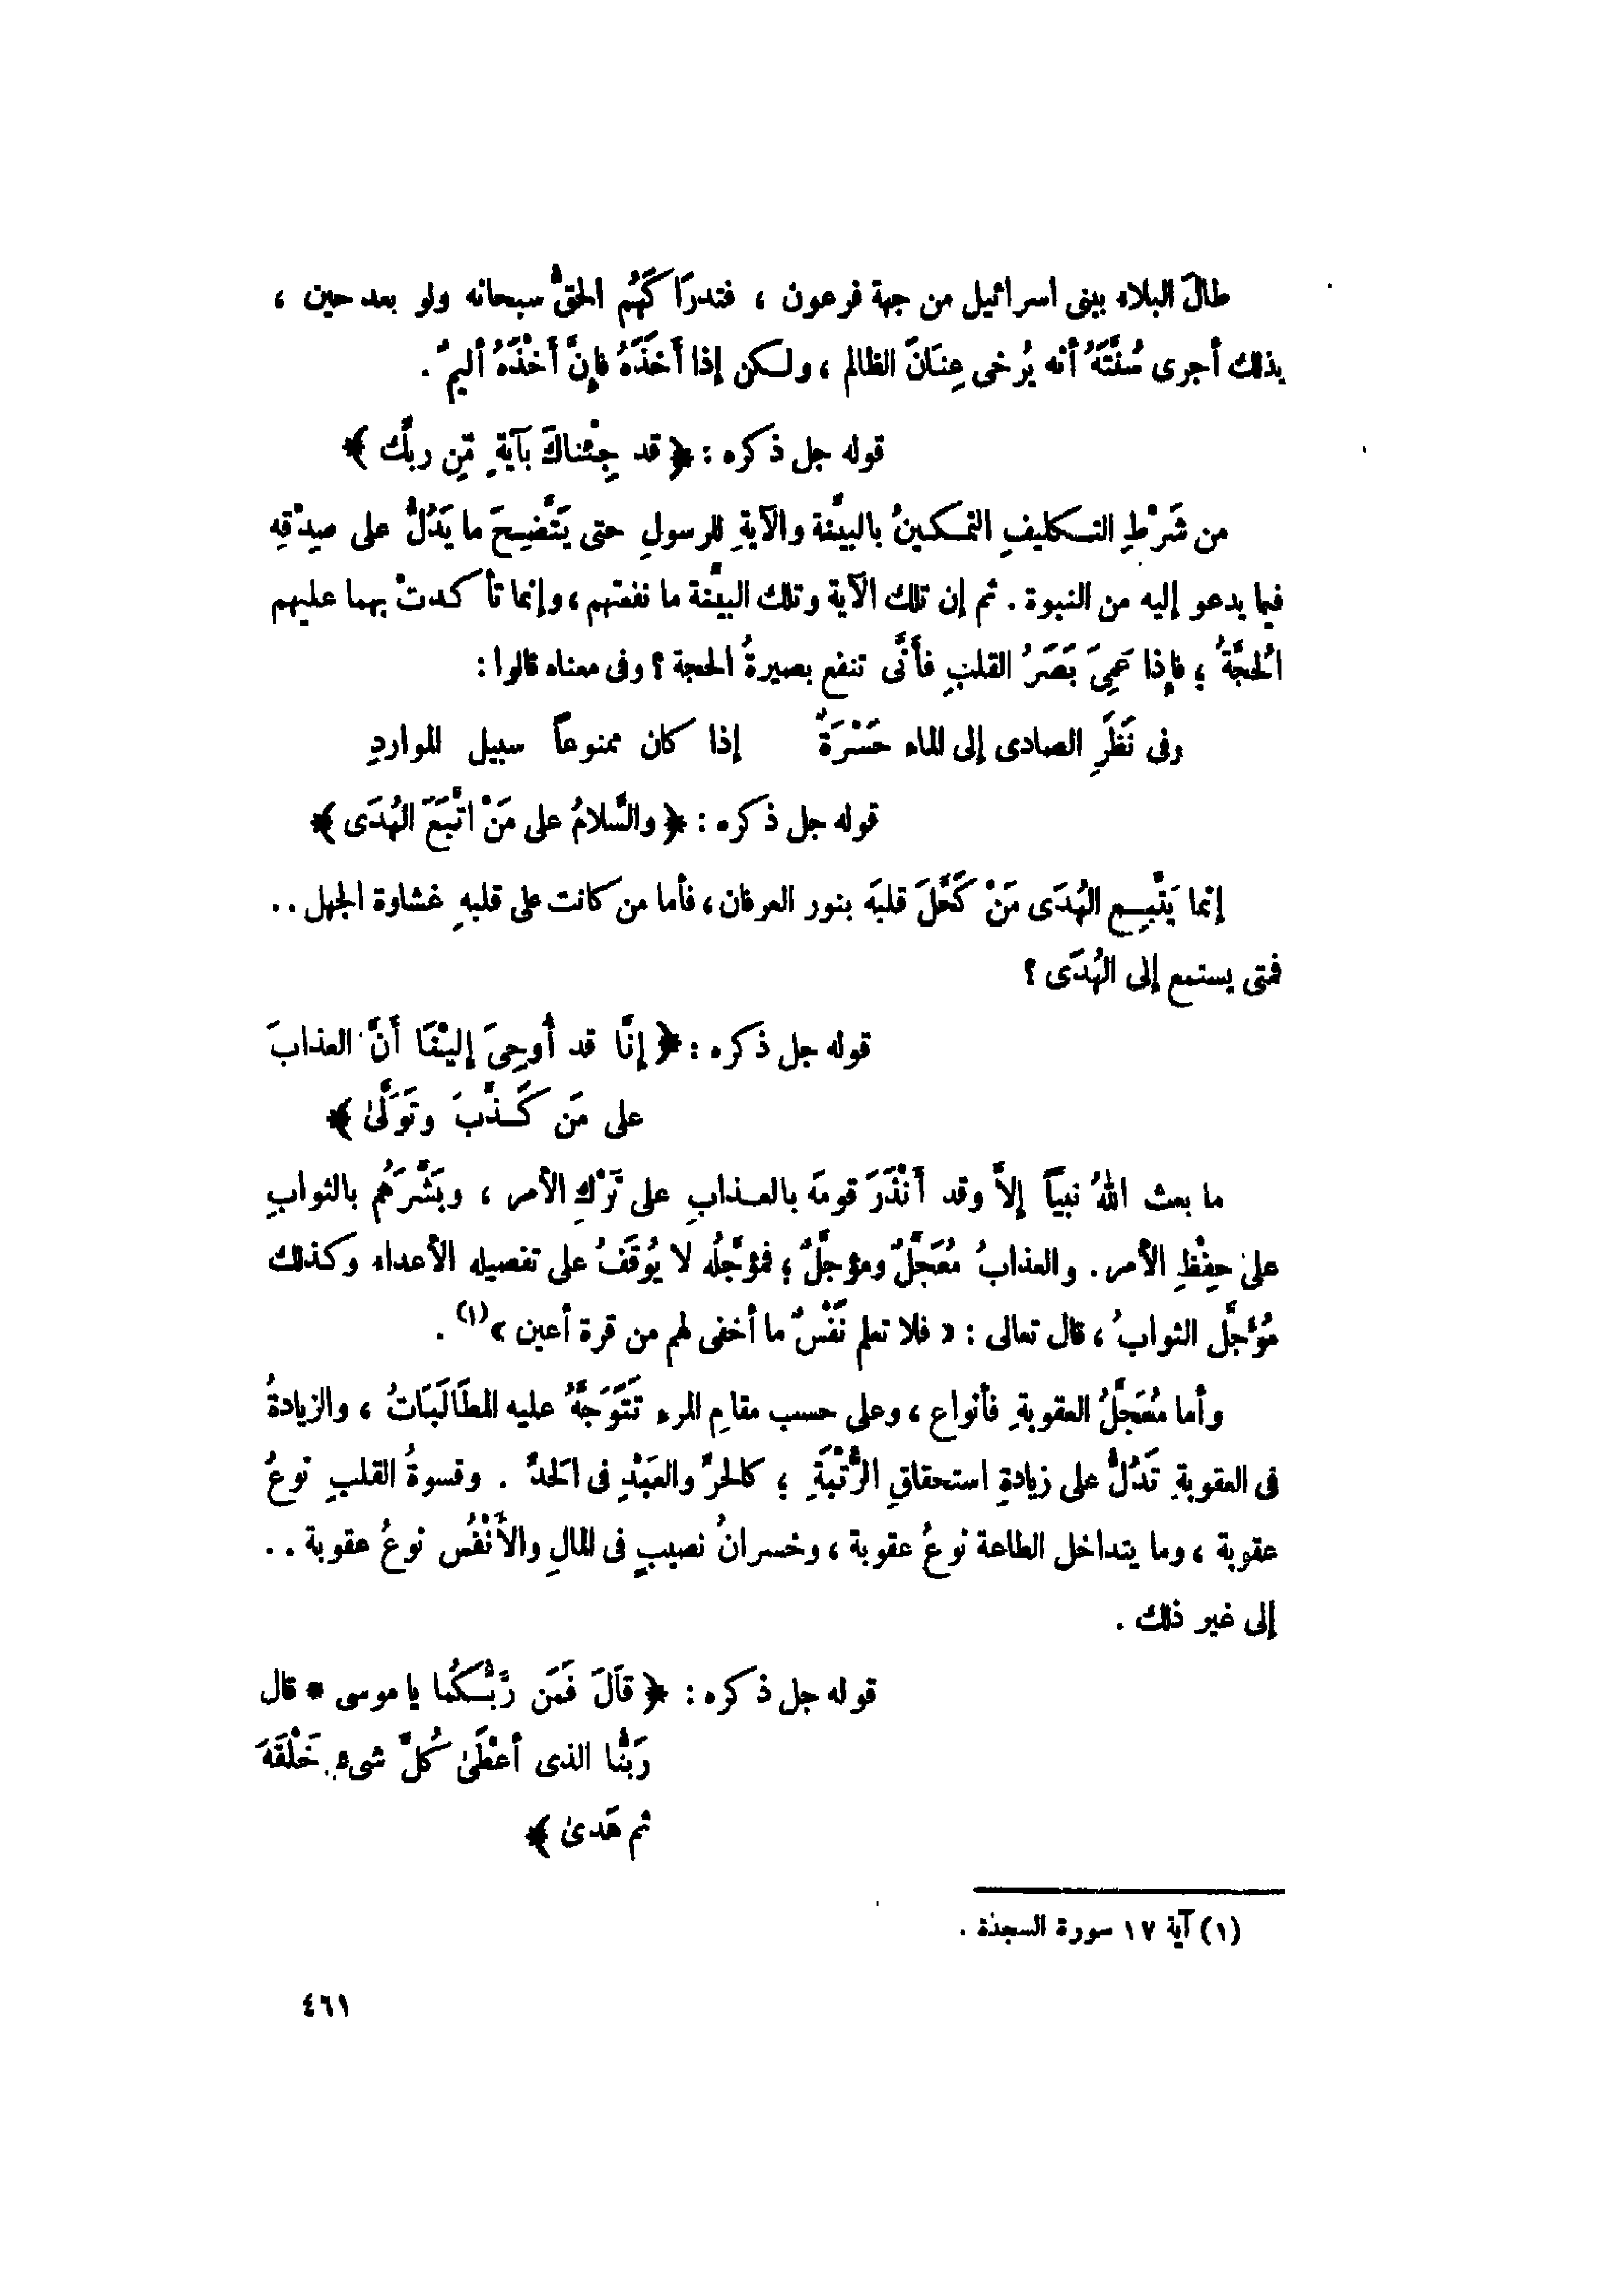 طالَ البلاء ببنى اسرائيل من جهة فرعون ، فتدرَاكَهُم الحقُّ سبحانه ولو بعد حين ،
بذلك أجرى سُنَّتَهُ أنه يُرخى عِنَانَ الظالم ، ولكن إذا أَخَذَهُ فإِنَّ أَخْذَهُ أليمٌ .
قوله جل ذكره : ﴿ قد جِئْناكَ بآيةٍ مِّن ربِّك ﴾
من شَرْطِ التكليفِ التمكينُ بالبيِّنة والآيةِ للرسولِ حتى يَتَّضِحَ ما يَدُلُّ على صِدْقِهِ
فيما يدعو إليه من النبوة . ثم إن تلك الآية وتلك البيِّنة ما نفعتهم ، وإنما تأكدتْ بهما عليهم
الْحجَّةُ ؛ فإذا عَمِىَ بَصَرُ القلبِ فأَنَّى تنفع بصيرةُ الحجة ؟ وفى معناه قالوا :
وفى نَظَرِ الصادى إلى الماء حَسْرَةٌ إذا كان ممنوعاً سبيل المواردِ
قوله جل ذكره : ﴿ والسَّلامُ على مَنْ اتَّبَعَ الهُدَى ﴾
إنما يَتَّبِع الهُدَى مَنْ كَحَّلَ قلبَه بنور العرفان ، فأما من كانت على قلبِه غشاوة الجهل ..
فمتى يستمع إلى الهُدَى ؟
قوله جل ذكره : ﴿ إنَّا قد أُوحِىَ إليْنَا أَنَّ العذابَ
على مَن كَذَّبَ وتَوَلَّىٰ ﴾
ما بعث اللهُ نبياً إلاَّ وقد أَنْذَرَ قومَه بالعذابِ على تَرْكِ الأمر ، وبَشَّرَهُم بالثوابِ
على حِفْظِ الأمر . والعذابُ مُعَجَّلٌ ومؤجلٌ ؛ فمؤجَّلُه لا يُوقَفُ على تفصيله الأعداء وكذلك
مُؤَجَّل الثوابُ ، قال تعالى : « فلا تعلم نَفْسٌ ما أخفى لهم من قرة أعين »(١) .
وأما مُعَجَّلُ العقوبةِ فأنواع ، وعلى حسب مقامِ المرء تَتَوَجَّهُ عليه المطَالَبَاتُ ، والزيادةُ
فى العقوبةِ تَدُلُّ على زيادةِ استحقاقِ الرُّتْبَةِ ؛ كالحرِّ والعَبْدِ فى الحَدِّ . وقسوةُ القلبِ نوعُ
عقوبة ، وما يتداخل الطاعة نوعُ عقوبة ، وخسرانُ نصيبٍ فى المالِ والأَنْفُس نوعُ عقوبة ..
إلى غير ذلك .
قوله جل ذكره : ﴿ قالَ فَمَن رَّبُّكُما يا موسى * قال
رَبُّنا الذى أعْطَىٰ كُلَّ شىءٍ خَلْقَهَ
ثم هَدىٰ ﴾
(١) آية ١٧ سورة السجدة .
٤٦١